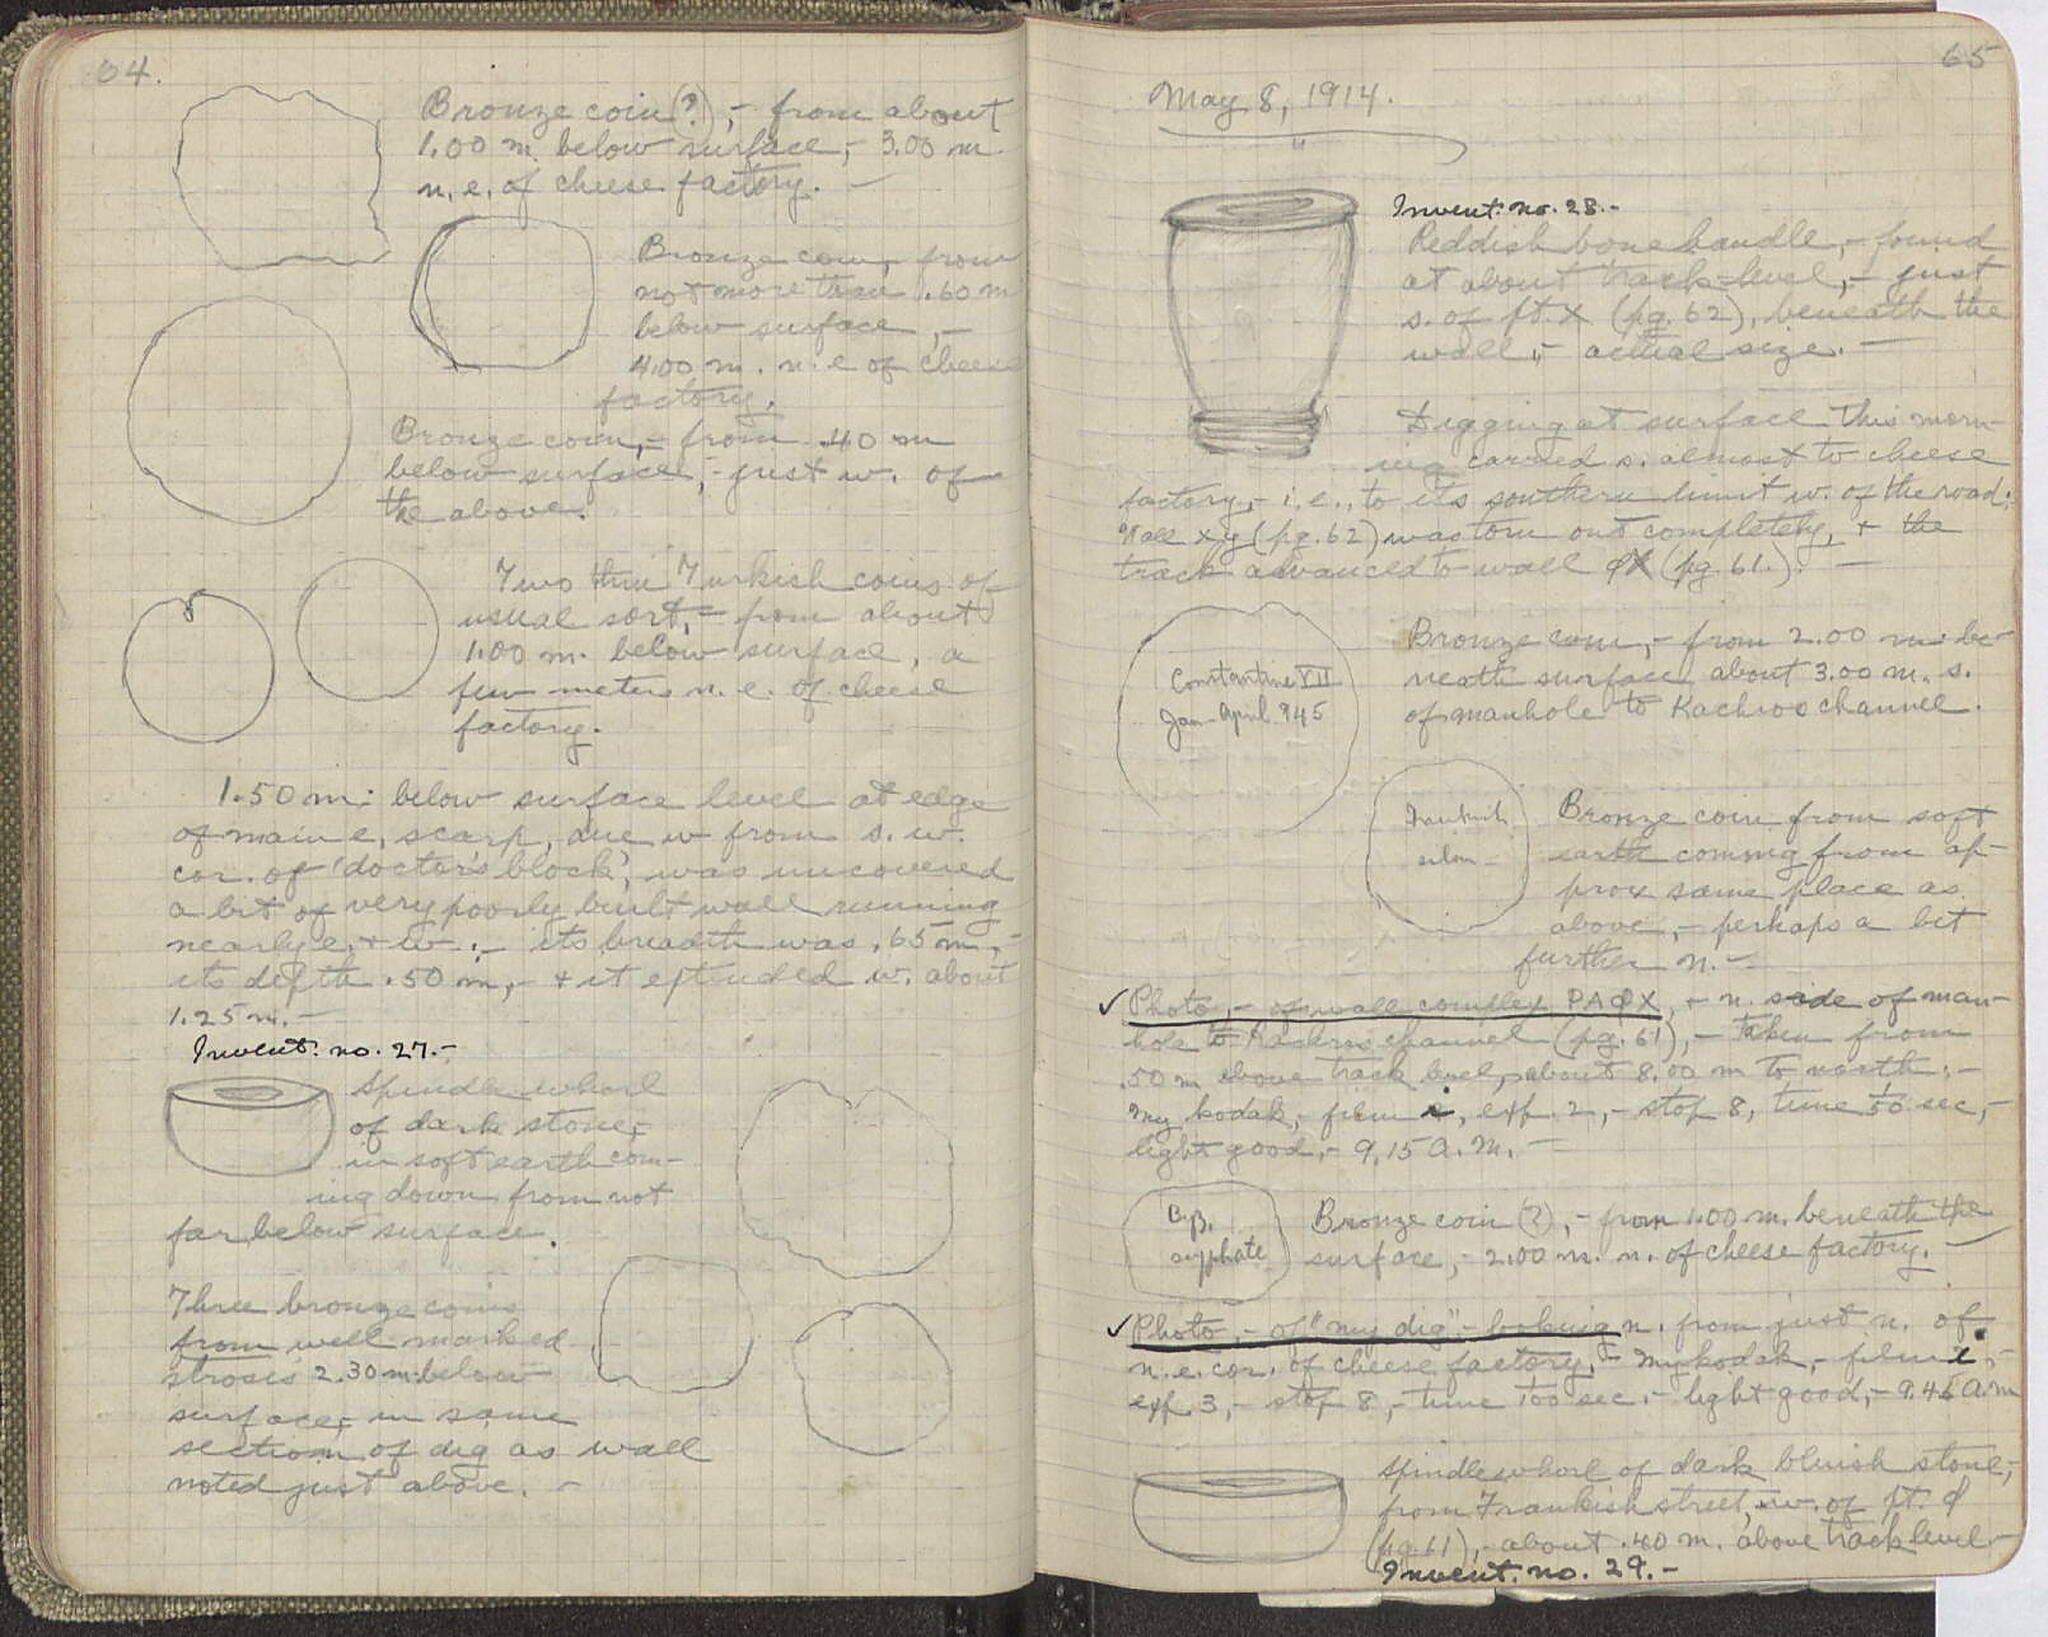 64.
Bronze coin (?), - from about
1.00 m. below surface, - 3.00 m
n. e. of cheese factory. -
Bronze coin, from
not more than .60 m
below surface, -
4.00 m. n. e of cheese
factory.
Bronze coin, - from .40 m
below surface, - just w. of
the above.
Two thin Turkish coins of
usual sort, - from about
1.00 m. below surface, a
few meters n. e. of cheese
factory.
1.50 m. below surface level at edge
of main e. scarp, due w from s. w.
cor. of 'doctor's block', was uncovered
a bit of very poorly built wall running
nearly e. + w. - its breadth was .65 m, -
its depth .50 m, - + it extended w. about
1.25 m. -
Invent. no. 27. -
Spindle whorl
of dark stone, -
in soft earth com-
ing down from not
far below surface.
Three bronze coins
from well marked
strosis 2.30 m. below
surface, in same
section of dig as wall
noted just above. -
65
May 8, 1914.
Invent. no. 28. -
Reddish bone handle, - found
at about track-level, - just
s. of pt. x (pg. 62), beneath the
wall, - actual size. -
Digging at surface this morn-
ing carried s. almost to cheese
factory, - i. e., to its southern limit w. of the road.
Wall xy (pg. 62) was torn out completely, + the
track advanced to wall φX (pg. 61.). -
Constantine VII
Jan - April 945
Bronze coin, - from 2.00 m. be-
neath surface about 3.00 m. s.
of manhole to Kachros channel.
Frankish
Bronze coin from soft
earth coming from ap-
prox same place as
above, - perhaps a bit
further n. -
✓ Photo, - of wall complex PAφX, + n. side of man-
hole to Kachros channel (pg. 61), - taken from
.50 m above track level, about 8.00 m to north. -
My kodak, - film i, exp. 2, - stop 8, time 1/50 sec, -
light good, - 9.15 A. M. -
Byz.
scyphate
Bronze coin (?), - from 1.00 m. beneath the
surface, - 2.00 m. n. of cheese factory. -
✓ Photo, - of "my dig" - looking n. from just n. of
n. e. cor. of cheese factory. - My kodak, - film i, -
exp. 3, - stop 8, - time 1/100 sec. - light good, - 9.45 A.M
Spindle whorl of dark bluish stone, -
from Frankish street, w. of pt. φ
(pg. 61), - about .40 m. above track level -
Invent. no. 29. -